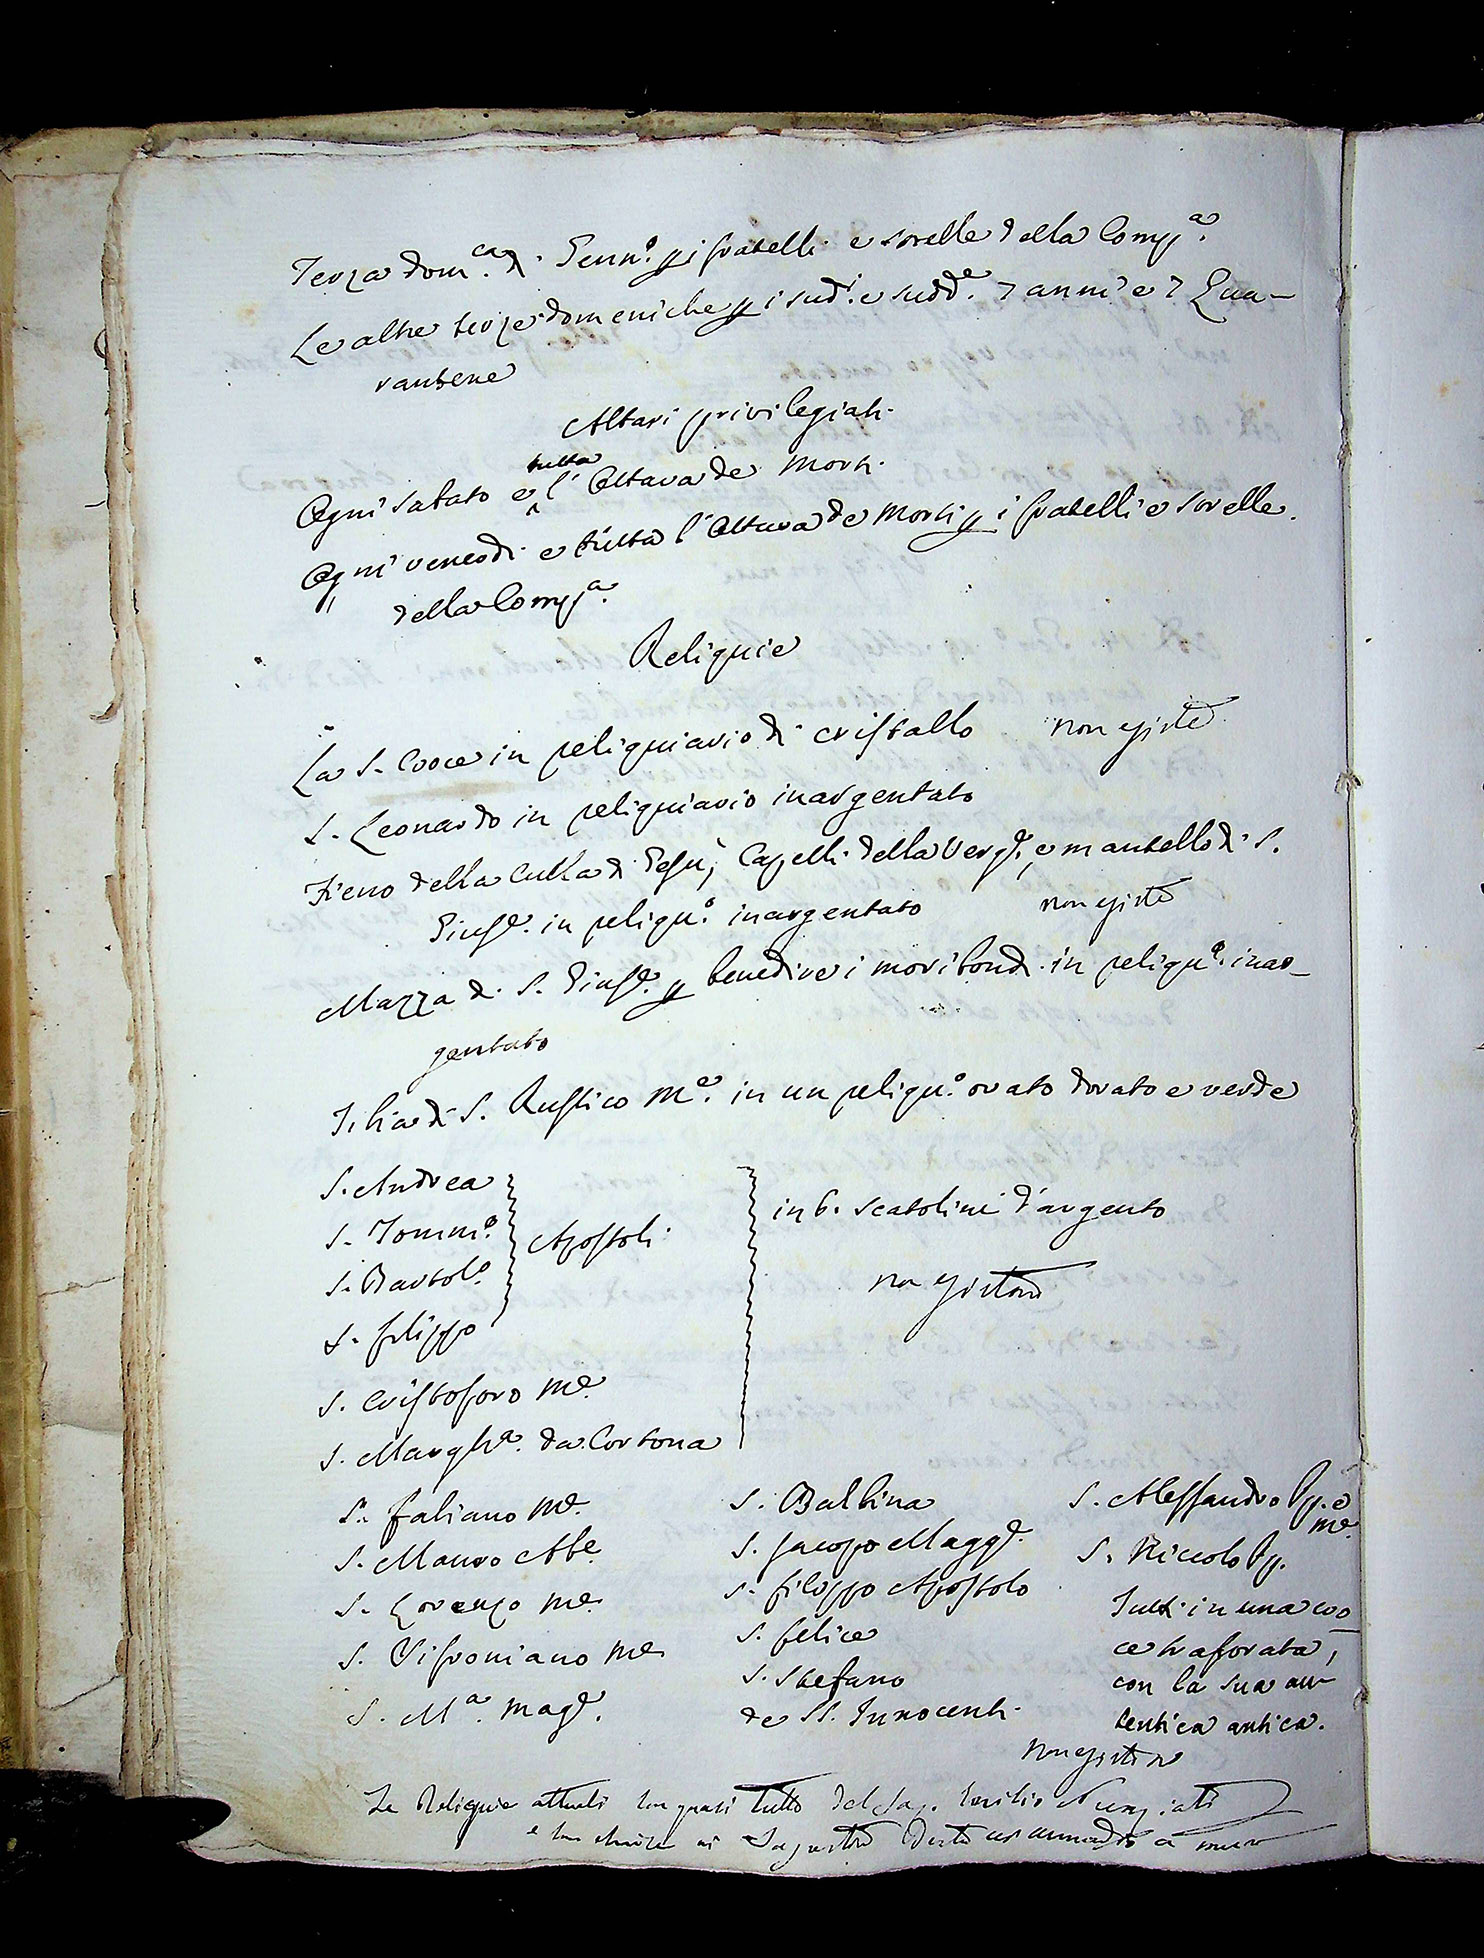 Terza dom.ca di Genn.o p i fratelli e sorelle della Comp.a
Le altre terze domeniche p i sud.i e sudd.e 7 anni e 7 Qua-
rantene
Altari privilegiati
Ogni sabato e tutta l'Ottava de Morti
Ogni venerdi e tutta l'Ottava de Morti p i fratelli e sorelle
della Comp.a
Reliquie
La S. Croce in reliquiario di cristallo non esiste
S. Leonardo in reliquiario inargentato
Fieno della Culla di Gesù, Capelli della Verg.e, e mantello di S.
Giuse. in reliqu.o inargentato non esiste
Mazza di S. Giuse. p benedire i moribondi in reliqu.o inar-
gentato
Tibia di S. Rustico M.e in un reliqu.o ovato dorato e verde
S. Andrea
S. Tomm.o
S. Bartol.o
S. Filippo
Apostoli
S. Cristoforo M.e
S. Margh.a da Cortona
in 6. scatolini d'argento
non esistono
S. Fabiano M.e
S. Mauro Abe.
S. Lorenzo M.e
S. Sifroniano M.e
S. M.a Mag.e
S. Balbina
S. Jacopo Magg.e
S. Filippo Apostolo
S. Felice
S. Stefano
de SS. Innocenti
S. Alessandro Pp. e
M.e
S. Niccolo Pp.
Tutti in una cro-
ce traforata,
con la sua au-
tentica antica.
Non esiste
Le Reliquie attuali son quasi tutte del Sac. Emilio Nunziati
e son chiuse in Sagrestia armadio a muro